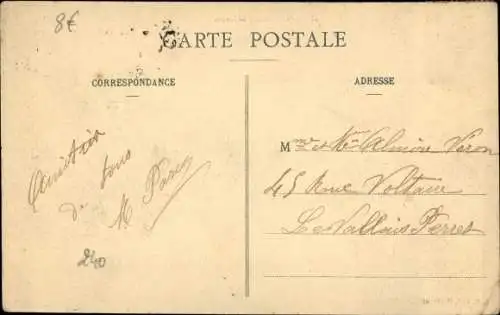 8€
CARTE POSTALE
CORRESPONDANCE
ADRESSE
Amitiés
de tous
M
240
Mme et Mr Veron
45 Rue Voltaire
Levallois Perret